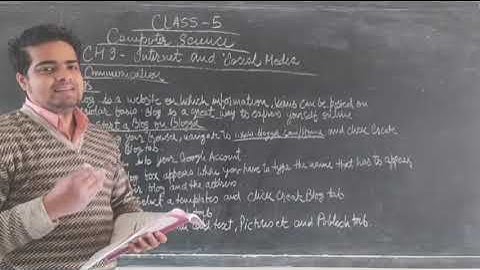 CLASS-5
Computer Science
CH 9- Internet and Social Media
Communication
Blog is a website on which information, views can be posted on
regular basis. Blog is a great way to express yourself online
a Blog on Blogger
your browser, navigate to and click Create
Blog tab
into your Google Account
box appears where you have to type the name that has to appear
blog and the address
Select a templates and click Create Blog tab
tab
add text, Pictures etc and Publish tab.